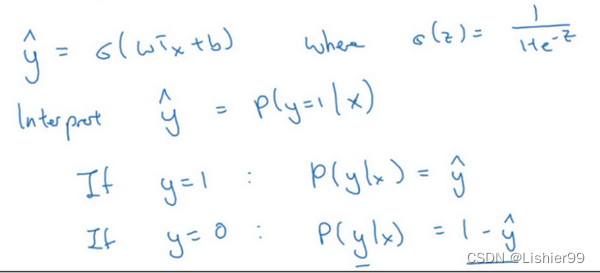 ŷ = σ(wᵀx + b) where σ(z) = 1/(1+e^-z)
Interpret ŷ = p(y=1|x)
If y=1 : p(y|x) = ŷ
If y=0 : p(y|x) = 1 - ŷ
CSDN @Lishier99